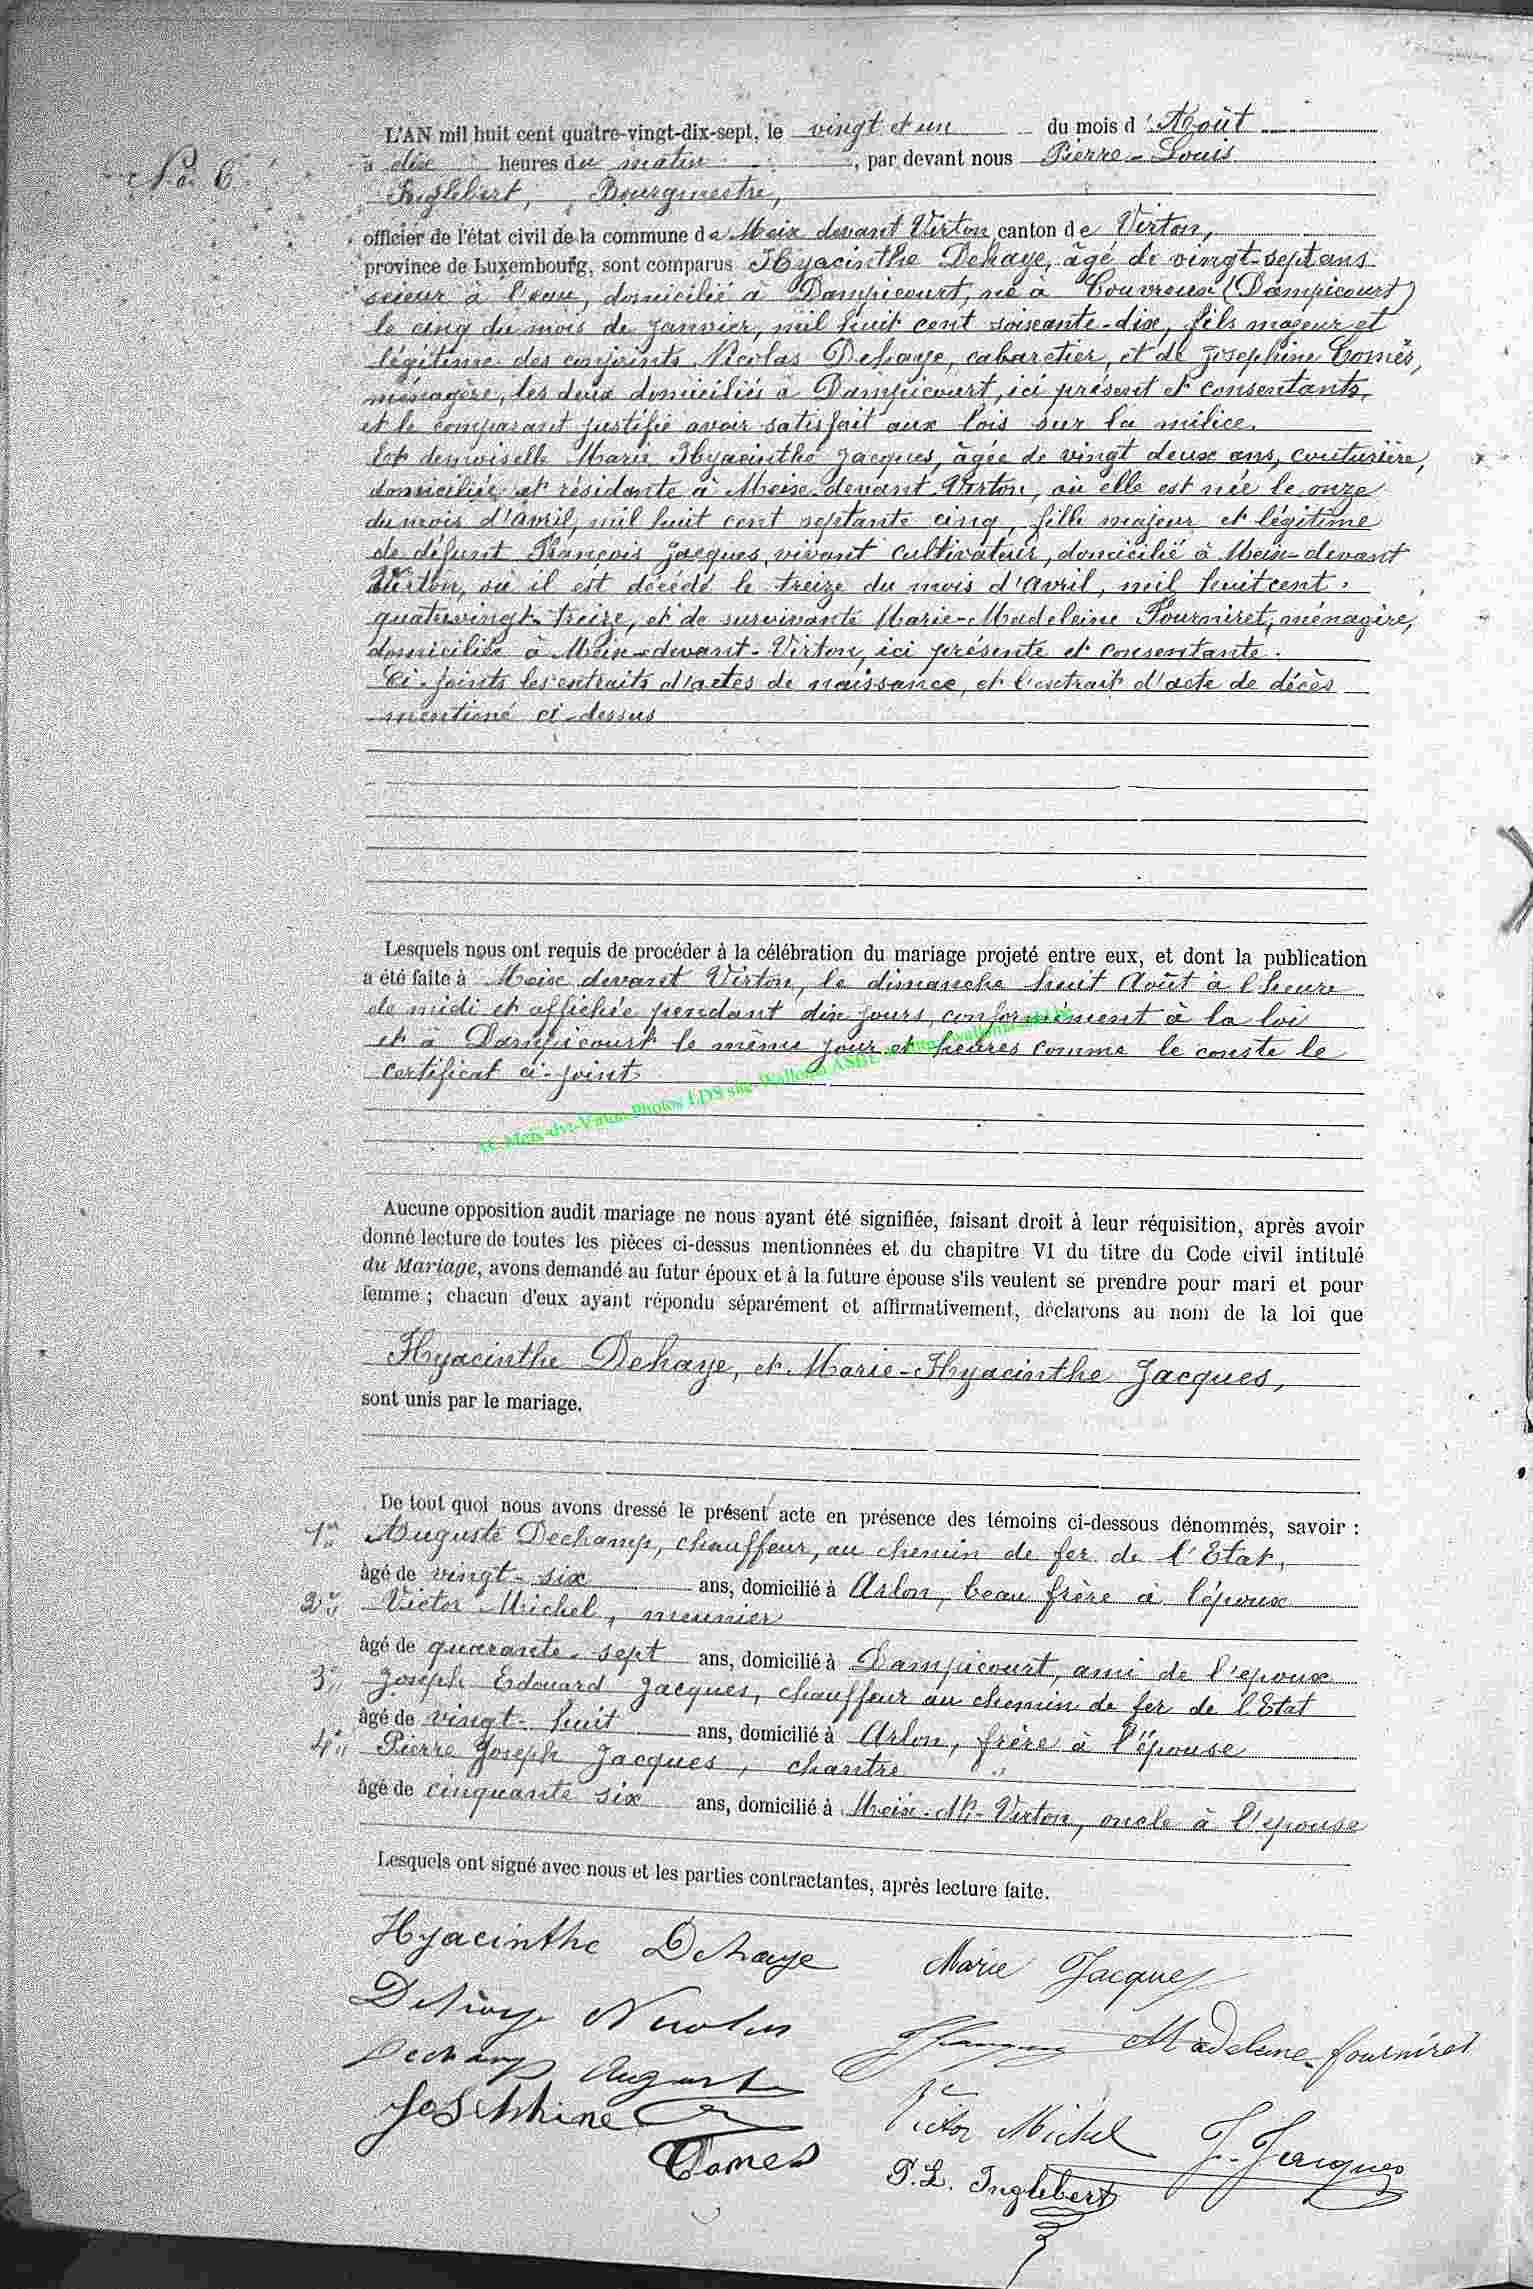 No. 6
L'AN mil huit cent quatre-vingt-dix-sept, le vingt et un du mois d'Août
à dix heures du matin, par devant nous Pierre-Louis
Inglebert, Bourgmestre,
officier de l'état civil de la commune de Meix devant Virton canton de Virton,
province de Luxembourg, sont comparus Hyacinthe Dehaye, âgé de vingt-sept ans
scieur à l'eau, domicilié à Dampicourt, né à Couvreux (Dampicourt)
le cinq du mois de Janvier, mil huit cent soixante-dix, fils majeur et
légitime des conjoints Nicolas Dehaye, cabaretier, et de Joséphine Comès,
ménagère, les deux domiciliés à Dampicourt, ici présent et consentants,
et le comparant justifie avoir satisfait aux lois sur la milice.
Et demoiselle Marie Hyacinthe Jacques, âgée de vingt deux ans, couturière,
domiciliée et résidante à Meix-devant-Virton, où elle est née le onze
du mois d'avril, mil huit cent septante cinq, fille majeur et légitime
de défunt François Jacques, vivant cultivateur, domicilié à Meix-devant
Virton, où il est décédé le treize du mois d'avril, mil huit cent
quatre-vingt-treize, et de survivante Marie-Madeleine Fourniret, ménagère,
domiciliée à Meix-devant-Virton, ici présente et consentante.
Ci-joints les extraits d'actes de naissance, et l'extrait d'acte de décès
mentioné ci-dessus
Lesquels nous ont requis de procéder à la célébration du mariage projeté entre eux, et dont la publication
a été faite à Meix devant Virton, le dimanche huit Août à l'heure
de midi et affichée pendant dix jours, conformément à la loi
et à Dampicourt le même jour et heures comme le conste le
certificat ci-joint
AC Meix-dvt-Virton Photos LDS site Wallonia ASBL
Aucune opposition audit mariage ne nous ayant été signifiée, faisant droit à leur réquisition, après avoir
donné lecture de toutes les pièces ci-dessus mentionnées et du chapitre VI du titre du Code civil intitulé
du Mariage, avons demandé au futur époux et à la future épouse s'ils veulent se prendre pour mari et pour
femme ; chacun d'eux ayant répondu séparément et affirmativement, déclarons au nom de la loi que
Hyacinthe Dehaye, et Marie-Hyacinthe Jacques,
sont unis par le mariage.
De tout quoi nous avons dressé le présent acte en présence des témoins ci-dessous dénommés, savoir :
1er Auguste Dechamp, chauffeur, au chemin de fer de l'Etat,
âgé de vingt-six ans, domicilié à Arlon, beau frère à l'époux
2e Victor Michel, meunier
âgé de quarante-sept ans, domicilié à Dampicourt, ami de l'epoux
3e Joseph Edouard Jacques, chauffeur au chemin de fer de l'Etat
âgé de vingt-huit ans, domicilié à Arlon, frère à l'épouse
4e Pierre Joseph Jacques, chantre
âgé de cinquante six ans, domicilié à Meix-dt-Virton, oncle à l'epouse
Lesquels ont signé avec nous et les parties contractantes, après lecture faite.
Hyacinthe Dehaye Marie Jacques
Dehaye Nicolas Madeleine fourniret
Dechamp August
Josephine Comes
Victor Michel J. Jacques
P. L. Inglebert